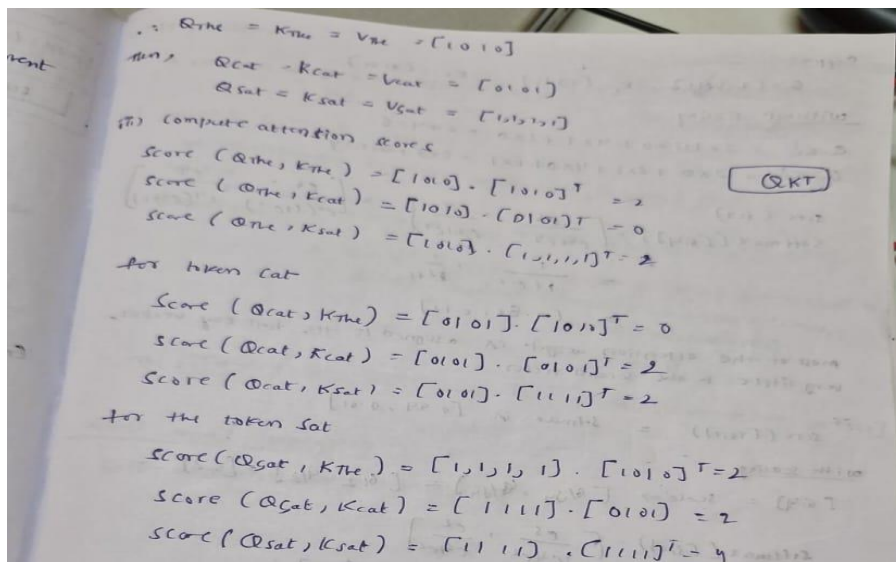 ∴ QThe = KThe = VThe = [1010]
then, Qcat = Kcat = Vcat = [0101]
Qsat = Ksat = Vsat = [1,1,1,1]
iii) compute attention scores
score (QThe, KThe) = [1010] . [1010]ᵀ = 2
QKT
score (QThe, Kcat) = [1010] . [0101]ᵀ = 0
score (QThe, Ksat) = [1010] . [1,1,1,1]ᵀ = 2
for token cat
score (Qcat, KThe) = [0101] . [1010]ᵀ = 0
score (Qcat, Kcat) = [0101] . [0101]ᵀ = 2
score (Qcat, Ksat) = [0101] . [1111]ᵀ = 2
for the token sat
score (Qsat, KThe) = [1,1,1,1] . [1010]ᵀ = 2
score (Qsat, Kcat) = [1111] . [0101] = 2
score (Qsat, Ksat) = [1111] . [1111]ᵀ = 4